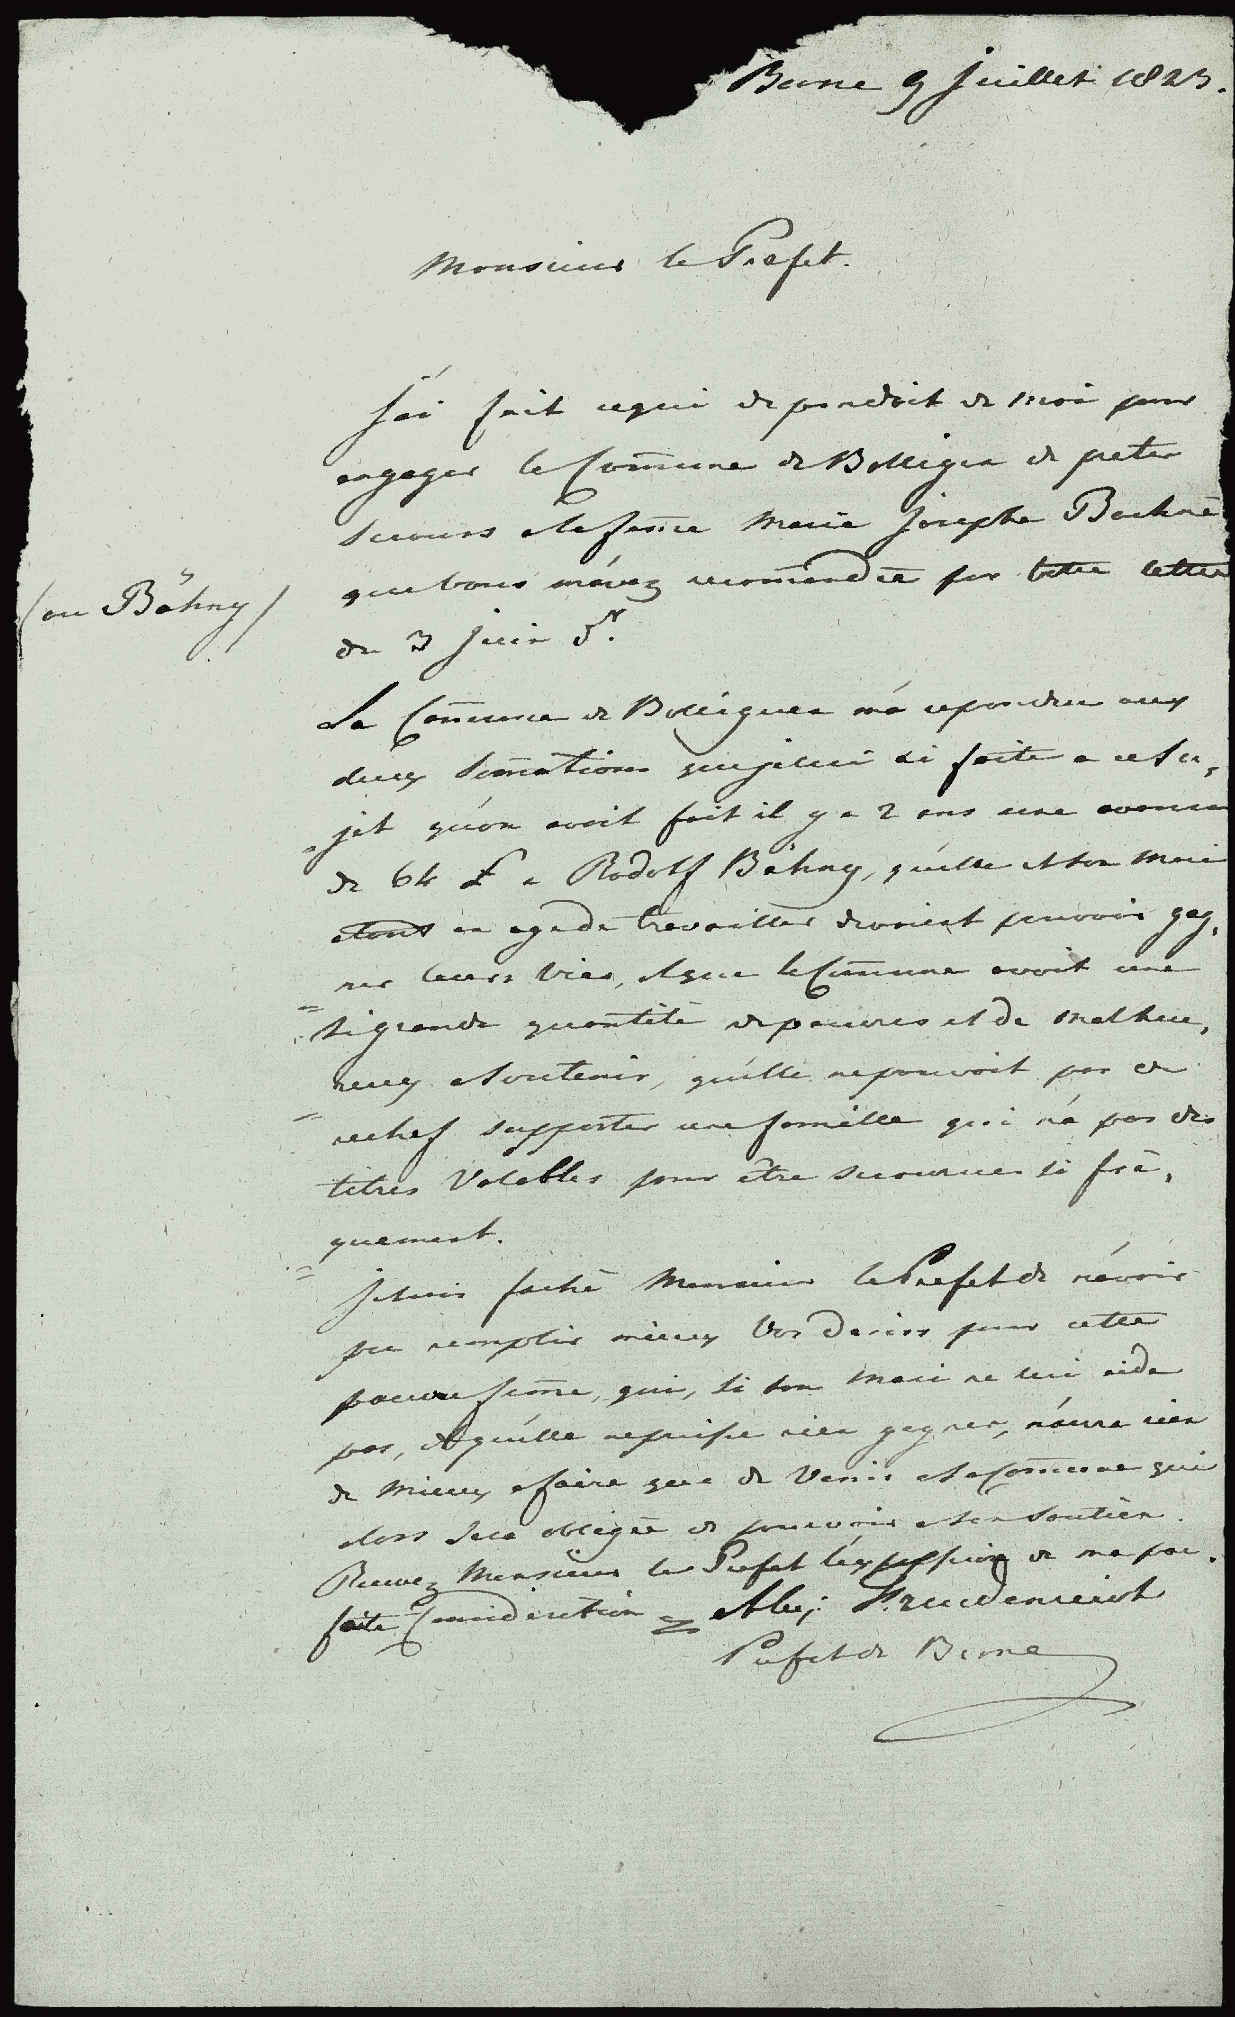 Berne 9 Juillet 1823.
Monsieur le Prefet.
J'ai fait cequi dependoit de moi pour
engager la Com̄une de Bolligen de preter
secours a la fem̄e Marie Josephe Bœhné
que vous m'avez recomandée par votre lettre
(ou Bähny)
du 3 Juin
La Com̄une de Bolliguen m'a repondu aux
deux Som̄ations que je lui ai faite a ce Su,
jet qu'on avoit fait il y a 2 ans une avance
de 64 £ a Rodolf Bähny, qu'elle et son mari
etant en age de travailler devroient pouvoir gag,
ner leurs vies, et que la Com̄une avoit une
si grande quantité de pauvres et de malheu,
reux a soutenir, qu'elle ne pouvoit pas de
rechef supporter une famille qui n'a pas des
titres valables pour être secourue si fré,
quement.
Je suis faché Monsieur le Prefet de n'avoir
pu remplir mieux vos desirs pour cette
pauvre fem̄e, qui, si son mari ne lui aide
pas, et qu'elle ne puisse rien gagner, n'aura rien
de mieux a faire que de venir a la Com̄une qui
alors sera obligée de pourvoir a son soutien.
Recevez Monsieur le Prefet l'expression de ma par,
faite Consideration
Prefet de Berne